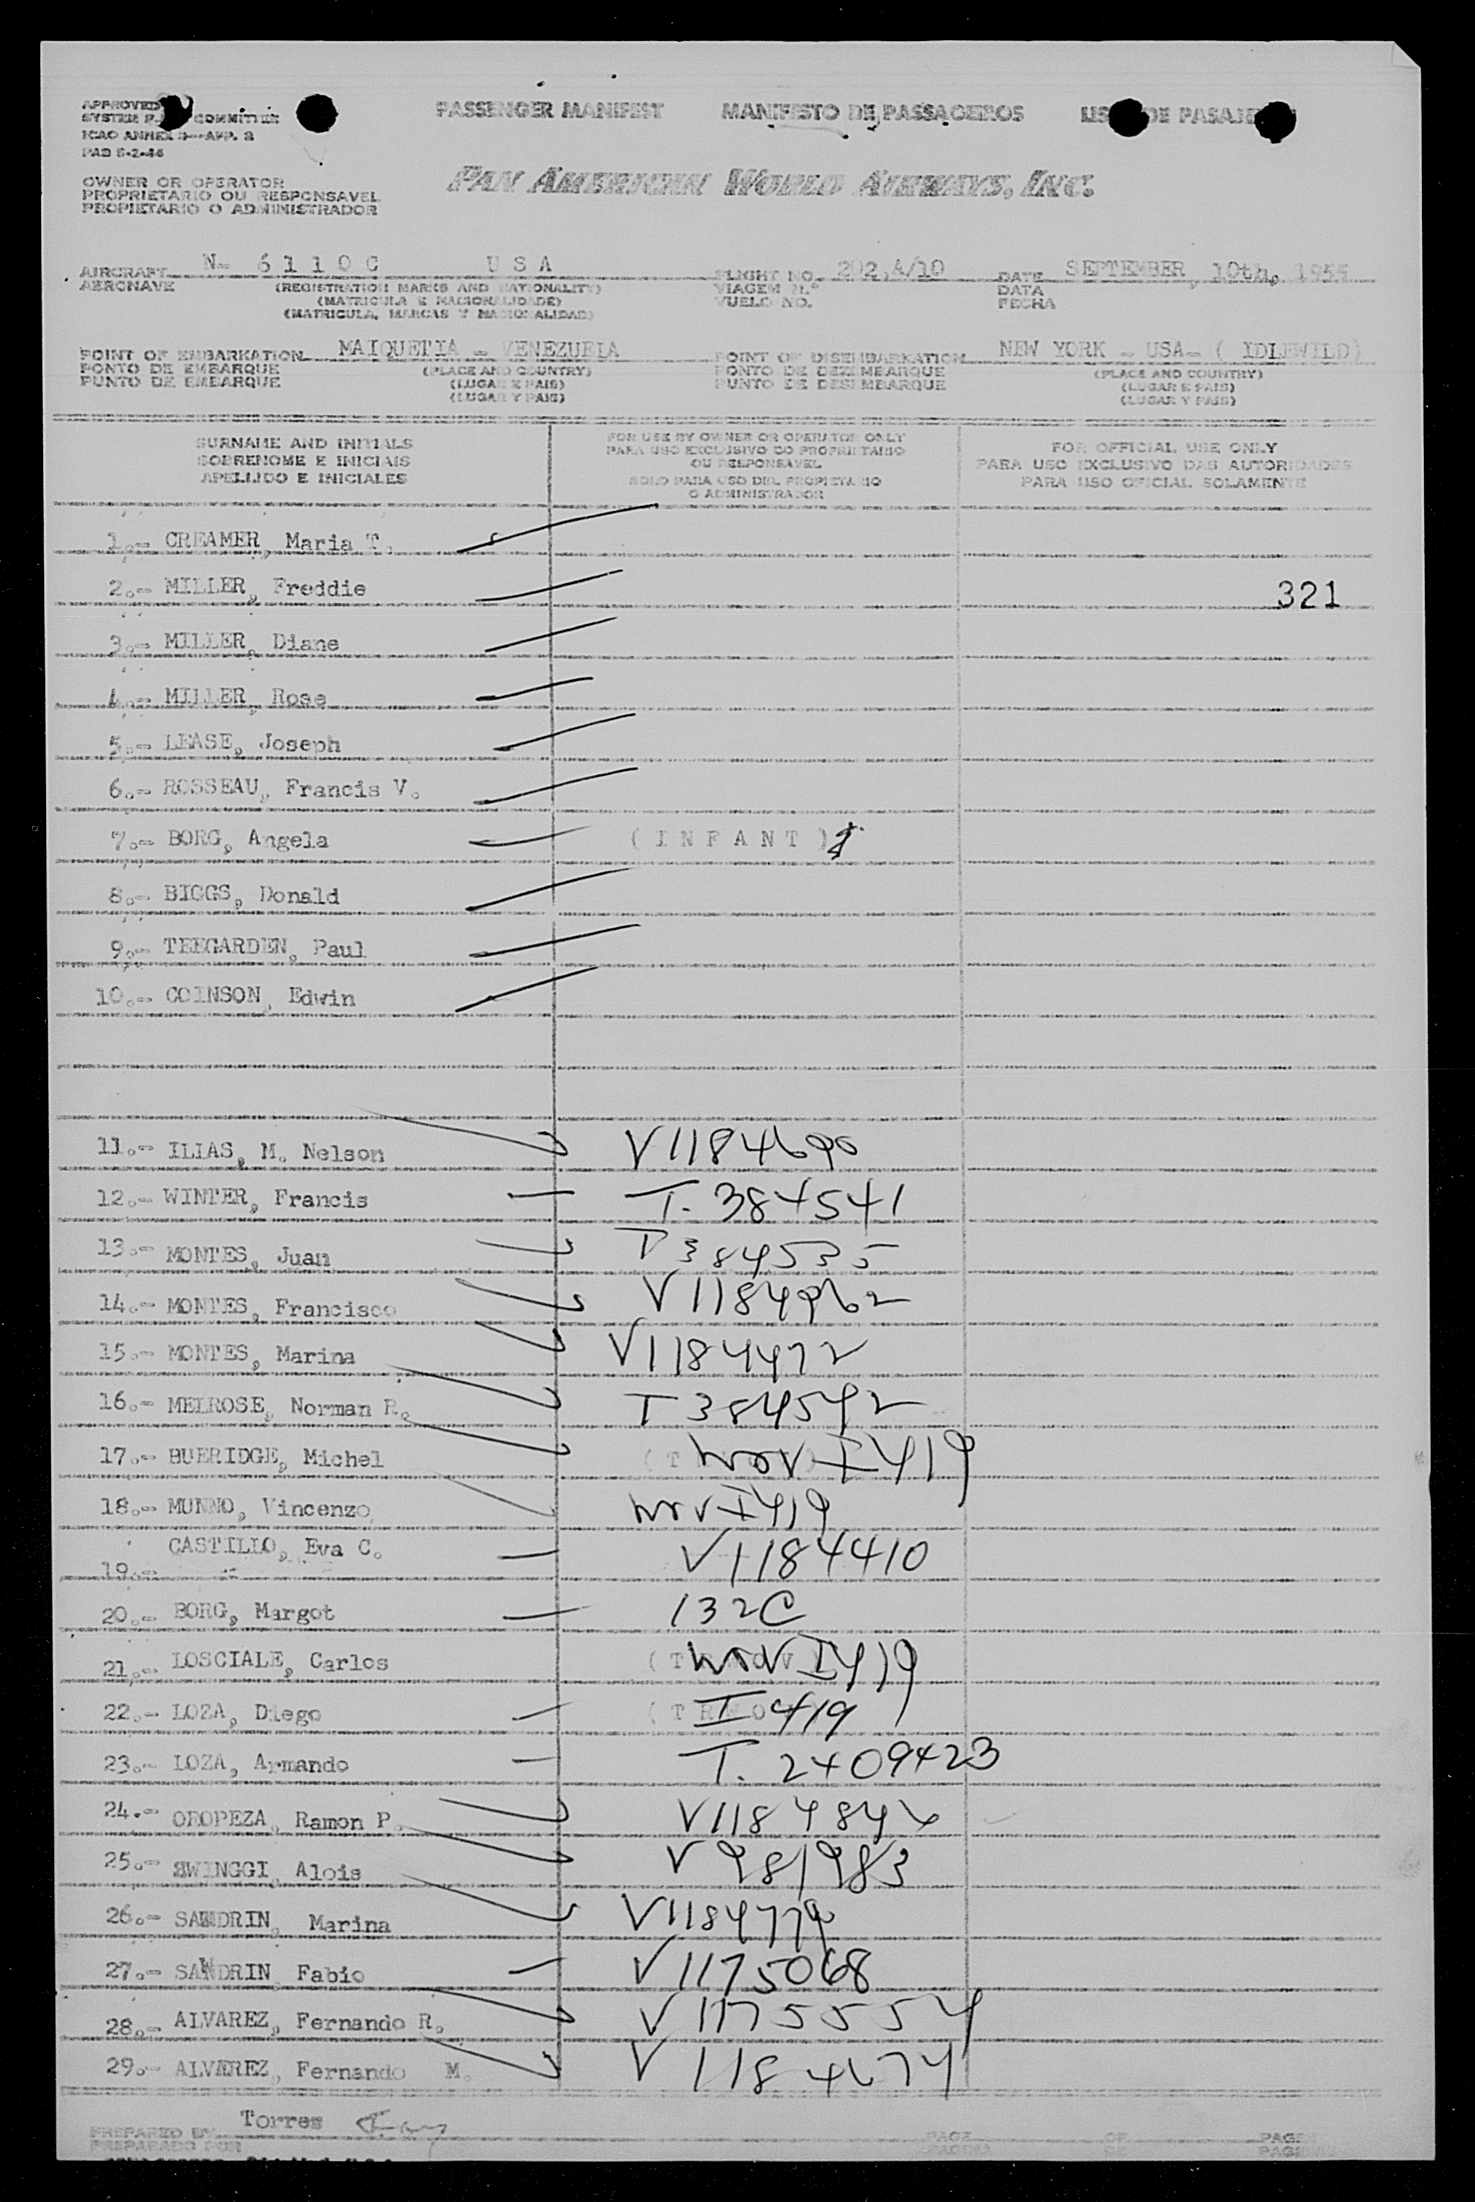 APPROVED
SYSTEM COMMITTEE
ICAO ANNEX 9—APP. 3
PAD 5-2-46
PASSENGER MANIFEST MANIFESTO DE PASSAGEIROS LISTA DE PASAJEROS
OWNER OR OPERATOR
PROPRIETARIO OU RESPONSAVEL
PROPIETARIO O ADMINISTRADOR
PAN AMERICAN WORLD AIRWAYS, INC.
AIRCRAFT N- 6110C USA FLIGHT NO. 202,A/10 DATE SEPTEMBER, 10th, 1955
AERONAVE (REGISTRATION MARKS AND NATIONALITY) VIAGEM N.º DATA
(MATRICULA E NACIONALIDADE) VUELO NO. FECHA
(MATRICULA, MARCAS Y NACIONALIDAD)
POINT OF EMBARKATION MAIQUETIA - VENEZUELA POINT OF DISEMBARKATION NEW YORK - USA- ( IDLEWILD)
PONTO DE EMBARQUE (PLACE AND COUNTRY) PONTO DE DESEMBARQUE (PLACE AND COUNTRY)
PUNTO DE EMBARQUE (LUGAR E PAIS) PUNTO DE DESEMBARQUE (LUGAR E PAIS)
(LUGAR Y PAIS) (LUGAR Y PAIS)
SURNAME AND INITIALS
SOBRENOME E INICIAIS
APELLIDO E INICIALES
FOR USE BY OWNER OR OPERATOR ONLY
PARA USO EXCLUSIVO DO PROPRIETARIO
OU RESPONSAVEL
SOLO PARA USO DEL PROPIETARIO
O ADMINISTRADOR
FOR OFFICIAL USE ONLY
PARA USO EXCLUSIVO DAS AUTORIDADES
PARA USO OFICIAL SOLAMENTE
1.- CREAMER, Maria T.
2.- MILLER, Freddie 321
3.- MILLER, Diane
4.- MILLER, Rose
5.- LEASE, Joseph
6.- ROSSEAU, Francis V.
7.- BORG, Angela ( I N F A N T )
8.- BIGGS, Donald
9.- TEEGARDEN, Paul
10.- COINSON, Edwin
11.- ILIAS, M. Nelson V1184690
12.- WINTER, Francis T. 384541
13.- MONTES, Juan T384535
14.- MONTES, Francisco V1184962
15.- MONTES, Marina V1184472
16.- MELROSE, Norman R. T384542
17.- BUERIDGE, Michel I419
18.- MUNNO, Vincenzo I419
19.- CASTILLO, Eva C. V1184410
20.- BORG, Margot 132C
21.- LOSCIALE, Carlos I419
22.- LOZA, Diego I419
23.- LOZA, Armando T. 2409423
24.- OROPEZA, Ramon P. V1184846
25.- ZWINGGI, Alois V981983
26.- SANDRIN, Marina V1184779
27.- SANDRIN, Fabio V1175068
28.- ALVAREZ, Fernando R. V1175554
29.- ALVEREZ, Fernando M. V1184674
PREPARED BY Torres PAGE OF PAGES
PREPARADO POR PAGINA DE